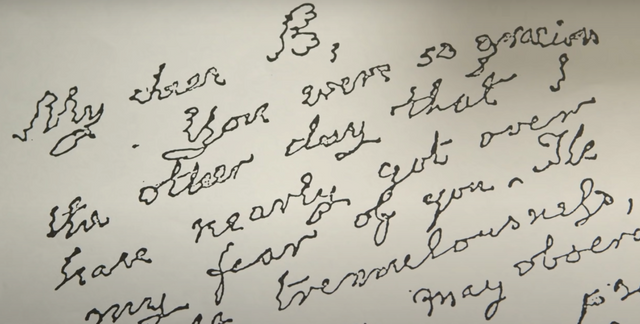 My dear B,
You were so gracious
the other day that I
have nearly got over
my fear of you. The
tremulousness,
may observe